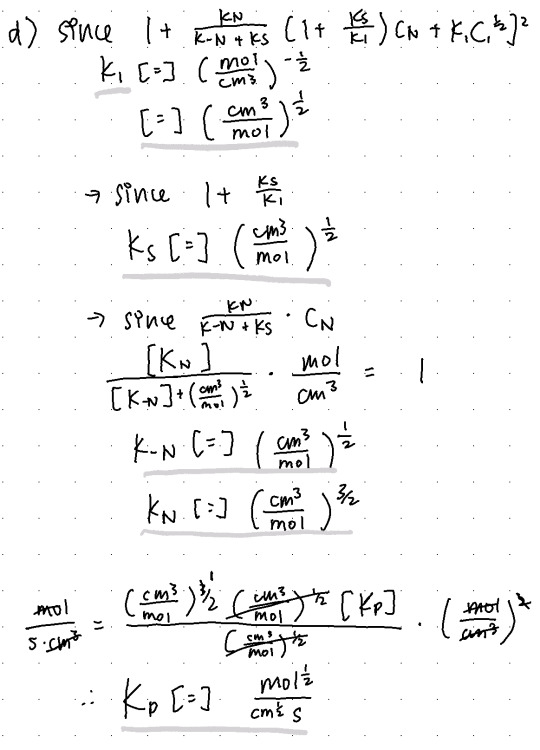 d) since 1 + \frac{k_N}{k_{-N} + k_S} (1 + \frac{k_S}{k_1}) C_N + K_1 C_1^{\frac{1}{2}}]^2
K_1 [=] (\frac{mol}{cm^3})^{-\frac{1}{2}}
[=] (\frac{cm^3}{mol})^{\frac{1}{2}}
→ since 1 + \frac{k_S}{k_1}
k_S [=] (\frac{cm^3}{mol})^{\frac{1}{2}}
→ since \frac{k_N}{k_{-N} + k_S} · C_N
\frac{[k_N]}{[k_{-N}] + (\frac{cm^3}{mol})^{\frac{1}{2}}} · \frac{mol}{cm^3} = 1
k_{-N} [=] (\frac{cm^3}{mol})^{\frac{1}{2}}
k_N [=] (\frac{cm^3}{mol})^{3/2}
\frac{mol}{s·cm^3} = \frac{(\frac{cm^3}{mol})^{3/2} (\frac{cm^3}{mol})^{1/2} [K_P]}{(\frac{cm^3}{mol})^{1/2}} · (\frac{mol}{cm^3})^2
∴ K_P [=] \frac{mol^{\frac{1}{2}}}{cm^{\frac{1}{2}} s}